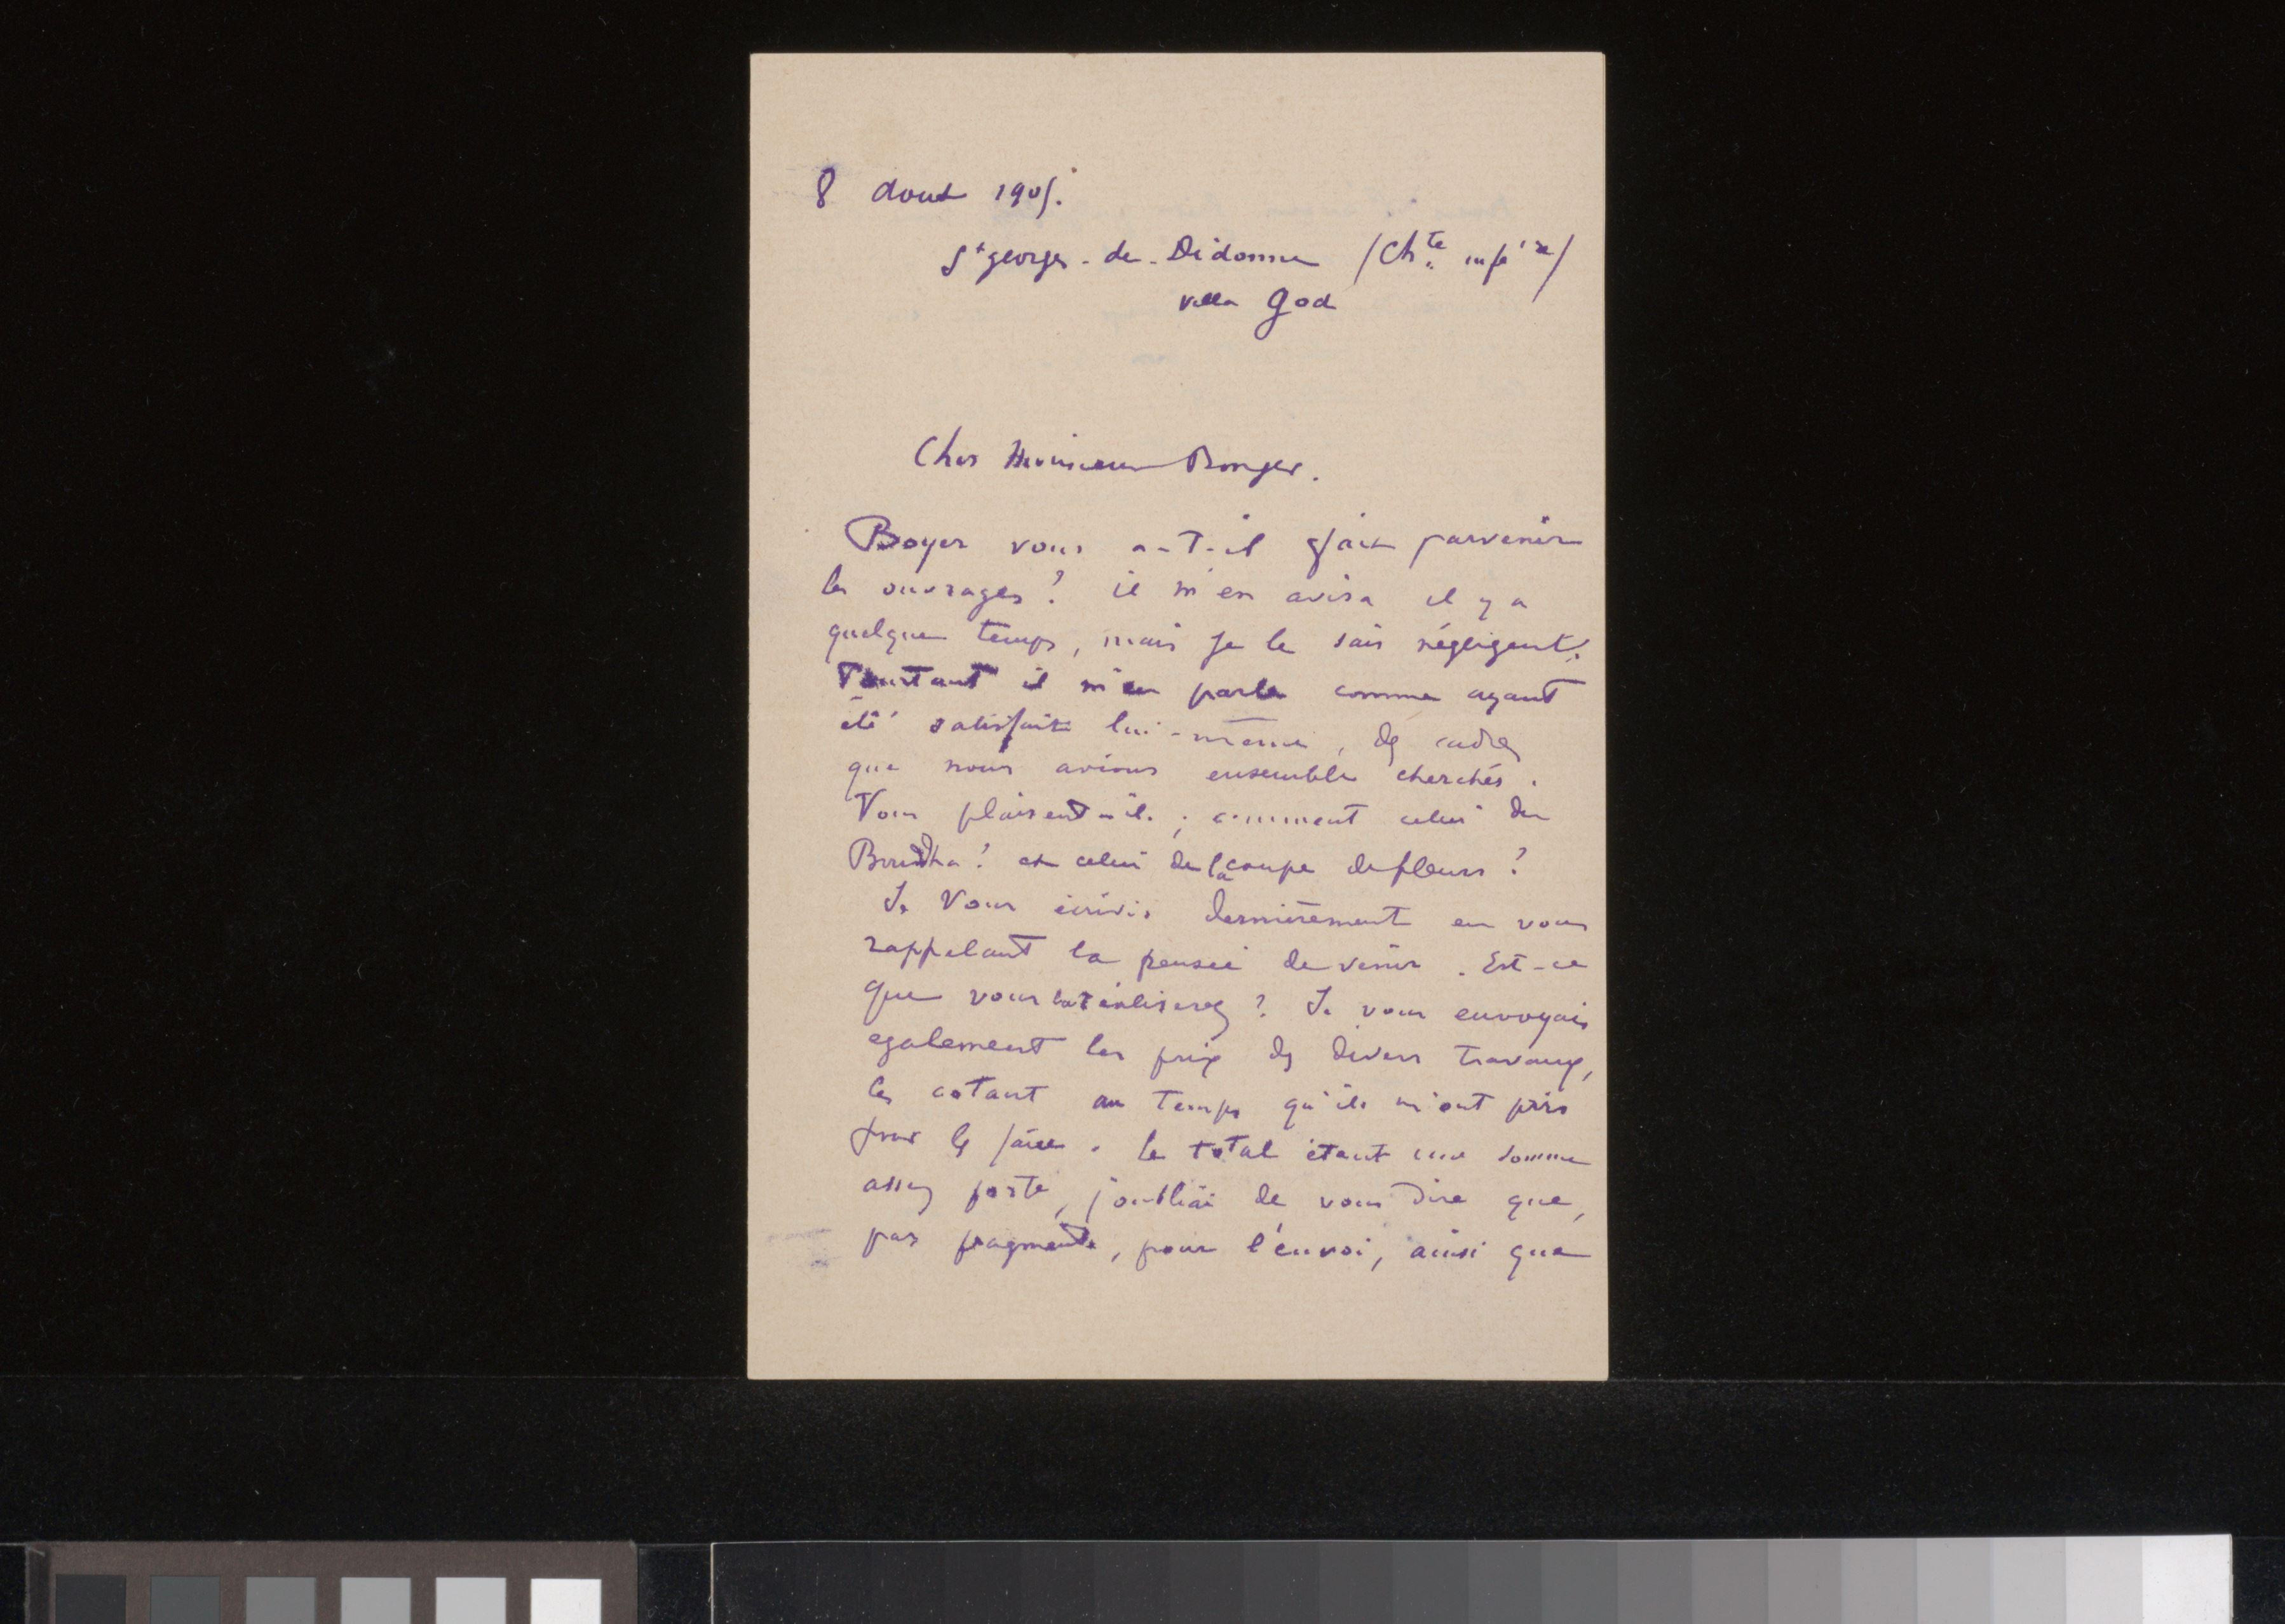 8 aout 1905.
St georges - de - Didonne (Chte infére)
villa god
Cher Monsieur Bonger.
Boyer vous a-t-il fait parvenir
les ouvrages? il m'en avisa il y a
quelque temps, mais je le sais négligent.
Pourtant il m'en parla comme ayant
été satisfait lui-même, des cadres
que nous avions ensemble cherchés.
Vous plaisent-ils; comment celui du
Bouddha? et celui de la coupe de fleurs?
Je vous écrivis dernièrement en vous
rappelant la pensée de venir. Est-ce
que vous la réaliserez? Je vous envoyais
egalement les prix des divers travaux,
les cotant au temps qu'ils m'ont pris
pour les faire. le total étant une somme
assez forte, j'oubliai de vous dire que,
par fragments, pour l'envoi, ainsi que